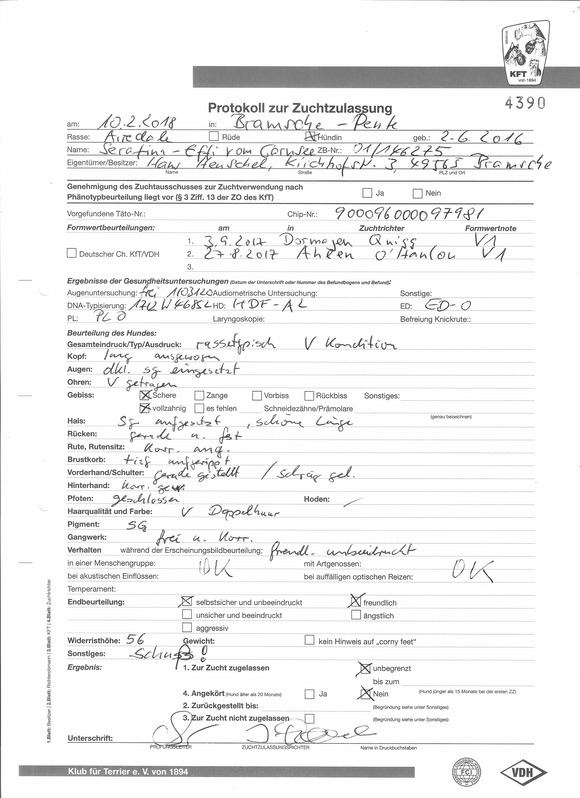 KFT
von 1894
4390
Protokoll zur Zuchtzulassung
am: 10.2.2018 in: Bramsche - Penk
Rasse: Airedale Rüde Hündin geb.: 2-6.2016
Name: Serafina - Effi vom Cornsee ZB-Nr.: 01/146275
Eigentümer/Besitzer: Hans Henschel, Kirchhofstr. 3, 49565 Bramsche
Name Straße PLZ und Ort
Genehmigung des Zuchtausschusses zur Zuchtverwendung nach
Phänotypbeurteilung liegt vor (§ 3 Ziff. 13 der ZO des KfT) Ja Nein
Vorgefundene Täto-Nr.: Chip-Nr.: 900096000097981
Formwertbeurteilungen: am in Zuchtrichter Formwertnote
1. 3.9.2017 Dormagen Quiss V1
Deutscher Ch. KfT/VDH 2. 27.8.2017 Ahlen O'Hanlon V1
3.
Ergebnisse der Gesundheitsuntersuchungen (Datum der Unterschrift oder Nummer des Befundbogens und Befund):
Augenuntersuchung: frei 1103120 Audiometrische Untersuchung: Sonstige:
DNA-Typisierung: 1712W46852 HD: HDF-A2 ED: ED-0
PL: PL 0 Laryngoskopie: Befreiung Knickrute:
Beurteilung des Hundes:
Gesamteindruck/Typ/Ausdruck: rassetypisch V Kondition
Kopf: lang ausgewogen
Augen: dkl. sg eingesetzt
Ohren: V getragen
Gebiss: Schere Zange Vorbiss Rückbiss Sonstiges:
vollzahnig es fehlen Schneidezähne/Prämolare
(genau bezeichnen)
Hals: Sg aufgesetzt, schöne Länge
Rücken: gerade u. fest
Rute, Rutensitz: Korr. ang.
Brustkorb: tief aufgerippt
Vorderhand/Schulter: gerade gestellt / schräg gel.
Hinterhand: Korr. gew.
Pfoten: geschlossen Hoden:
Haarqualität und Farbe: V Doppelhaar
Pigment: SG
Gangwerk: frei u. Korr.
Verhalten während der Erscheinungsbildbeurteilung: freundl. unbeeindruckt
in einer Menschengruppe: OK mit Artgenossen: OK
bei akustischen Einflüssen: bei auffälligen optischen Reizen:
Temperament:
Endbeurteilung: selbstsicher und unbeeindruckt freundlich
unsicher und beeindruckt ängstlich
aggressiv
Widerristhöhe: 56 Gewicht: kein Hinweis auf „corny feet“
Sonstiges: Schuss!
Ergebnis: 1. Zur Zucht zugelassen unbegrenzt
bis zum
4. Angekört (Hund älter als 20 Monate) Ja Nein (Hund jünger als 15 Monate bei der ersten ZZ)
2. Zurückgestellt bis: (Begründung siehe unter Sonstiges)
3. Zur Zucht nicht zugelassen (Begründung siehe unter Sonstiges)
Unterschrift:
PRÜFUNGSLEITER ZUCHTZULASSUNGSRICHTER Name in Druckbuchstaben
Klub für Terrier e. V. von 1894
FCI
VDH
1.Blatt: Besitzer | 2.Blatt: Richterobmann | 3.Blatt: KFT | 4.Blatt: Zuchtrichter